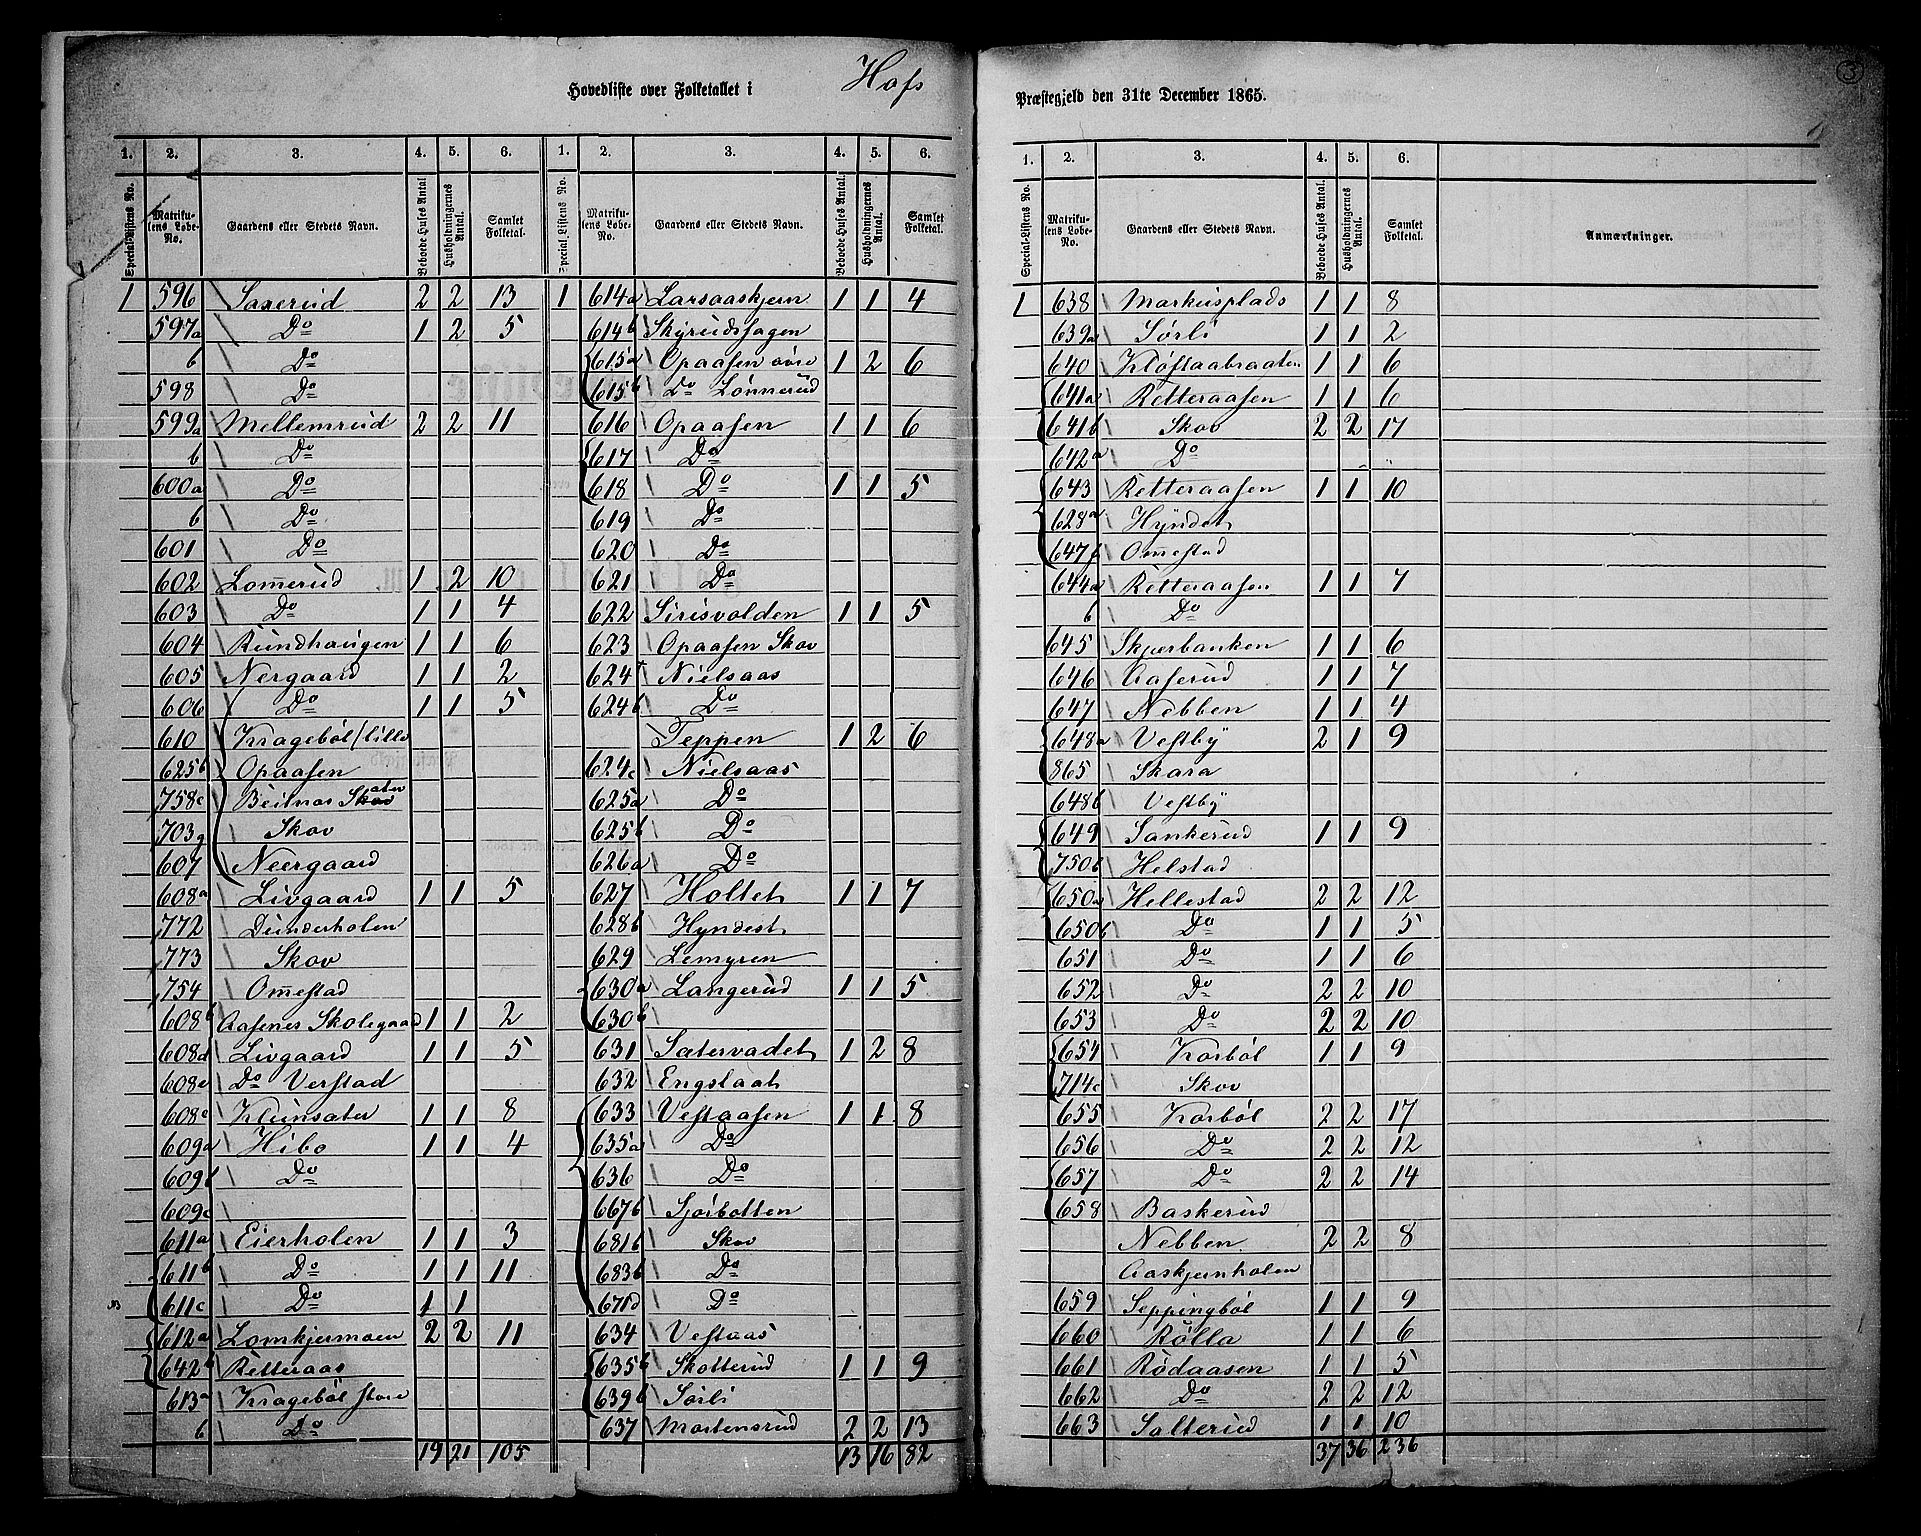 Hovedliste over Folketallet i Hofs Præstegjeld den 31te December 1865.
3
1. 2. 3. 4. 5. 6. 1. 2. 3. 4. 5. 6.
Special-Listens No. Matrikulens Løbe-No. Gaardens eller Stedets Navn. Beboede Huses Antal Husholdningernes Antal. Samlet Folketal. Special-Listens No. Matrikulens Løbe-No. Gaardens eller Stedets Navn. Beboede Huses Antal. Husholdningernes Antal. Samlet Folketal.
1 596 Saxerud 2 2 13
597a Do 1 2 5
b Do
598 Do
599a Mellemrud 2 2 11
b Do
600a Do
b Do
601 Do
602 Lomerud 1 2 10
603 Do 1 1 4
604 Rundhaugen 1 1 6
605 Nergaard 1 1 2
606 Do 1 1 5
610 Kragebøl/lille
625b Opaasen
758c Beitnos Skov
703g Skov
607 Neergaard
608a Livgaard 1 1 5
772 Dunderholen
773 Skov
754 Omestad
608b Aasenes Skolegaard 1 1 2
608d Livgaard 1 1 5
608e Do Verstad
608c Klunsater 1 1 8
609a Hibo 1 1 4
609b Do
609c
611a Eierholen 1 1 3
611b Do 1 1 11
611c Do 1 1
612a Lomkjermoen 2 2 11
642b Retteraas
613a Kragebøl store
b Do
19 21 105
1 614a Larsaaskjern 1 1 4
614b Skyrudshagen
615a Opaasen øvre 1 2 6
615b Do Lønnerud
616 Opaasen 1 1 6
617 Do
618 Do 1 1 5
619 Do
620 Do
621 Do
622 Sirisvolden 1 1 5
623 Opaasen Skov
624 Nielsaas
624b Do
Teppen 1 2 6
624c Nielsaas
625a Do
625b Do
626a Do
627 Holtet 1 1 7
628b Hyndest
629 Lemyren
630a Langerud 1 1 5
630b
631 Sætervadet 1 2 8
632 Engslaat
633 Vestaasen 1 1 8
635a Do
636 Do
667b Sjørbotten
681b Skov
683b Do
671d Do
634 Vestaas
635b Skotterud 1 1 9
639b Sørli
637 Mortensrud 2 2 13
13 16 82
1. 2. 3. 4. 5. 6.
Special-Listens No. Matrikulens Løbe-No. Gaardens eller Stedets Navn. Beboede Huses Antal. Husholdningernes Antal. Samlet Folketal. Anmærkninger.
1 638 Markusplads 1 1 8
639a Sørli 1 1 2
640 Kløftaabraaten 1 1 6
641a Retteraasen 1 1 6
641b Skov 2 2 17
642a Do
643 Retteraasen 1 1 10
628a Hyndet
647f Omestad
644a Retteraasen 1 1 7
b Do
645 Skjerbanken 1 1 6
646 Aaserud 1 1 7
647 Nebben 1 1 4
648a Vestby 2 1 9
865 Skara
648b Vestby
649 Sankerud 1 1 9
750b Helstad
650a Hellestad 2 2 12
650b Do 1 1 5
651 Do 1 1 6
652 Do 2 2 10
653 Do 2 2 10
654 Korbøl 1 1 9
714c Skov
655 Korbøl 2 2 17
656 Do 2 2 12
657 Do 2 2 14
658 Baskerud
Nebben 2 2 8
Aaskjernholen
659 Seppingbøl 1 1 9
660 Rølla 1 1 6
661 Rødaasen 1 1 5
662 Do 2 2 12
663 Salterud 1 1 10
37 36 236